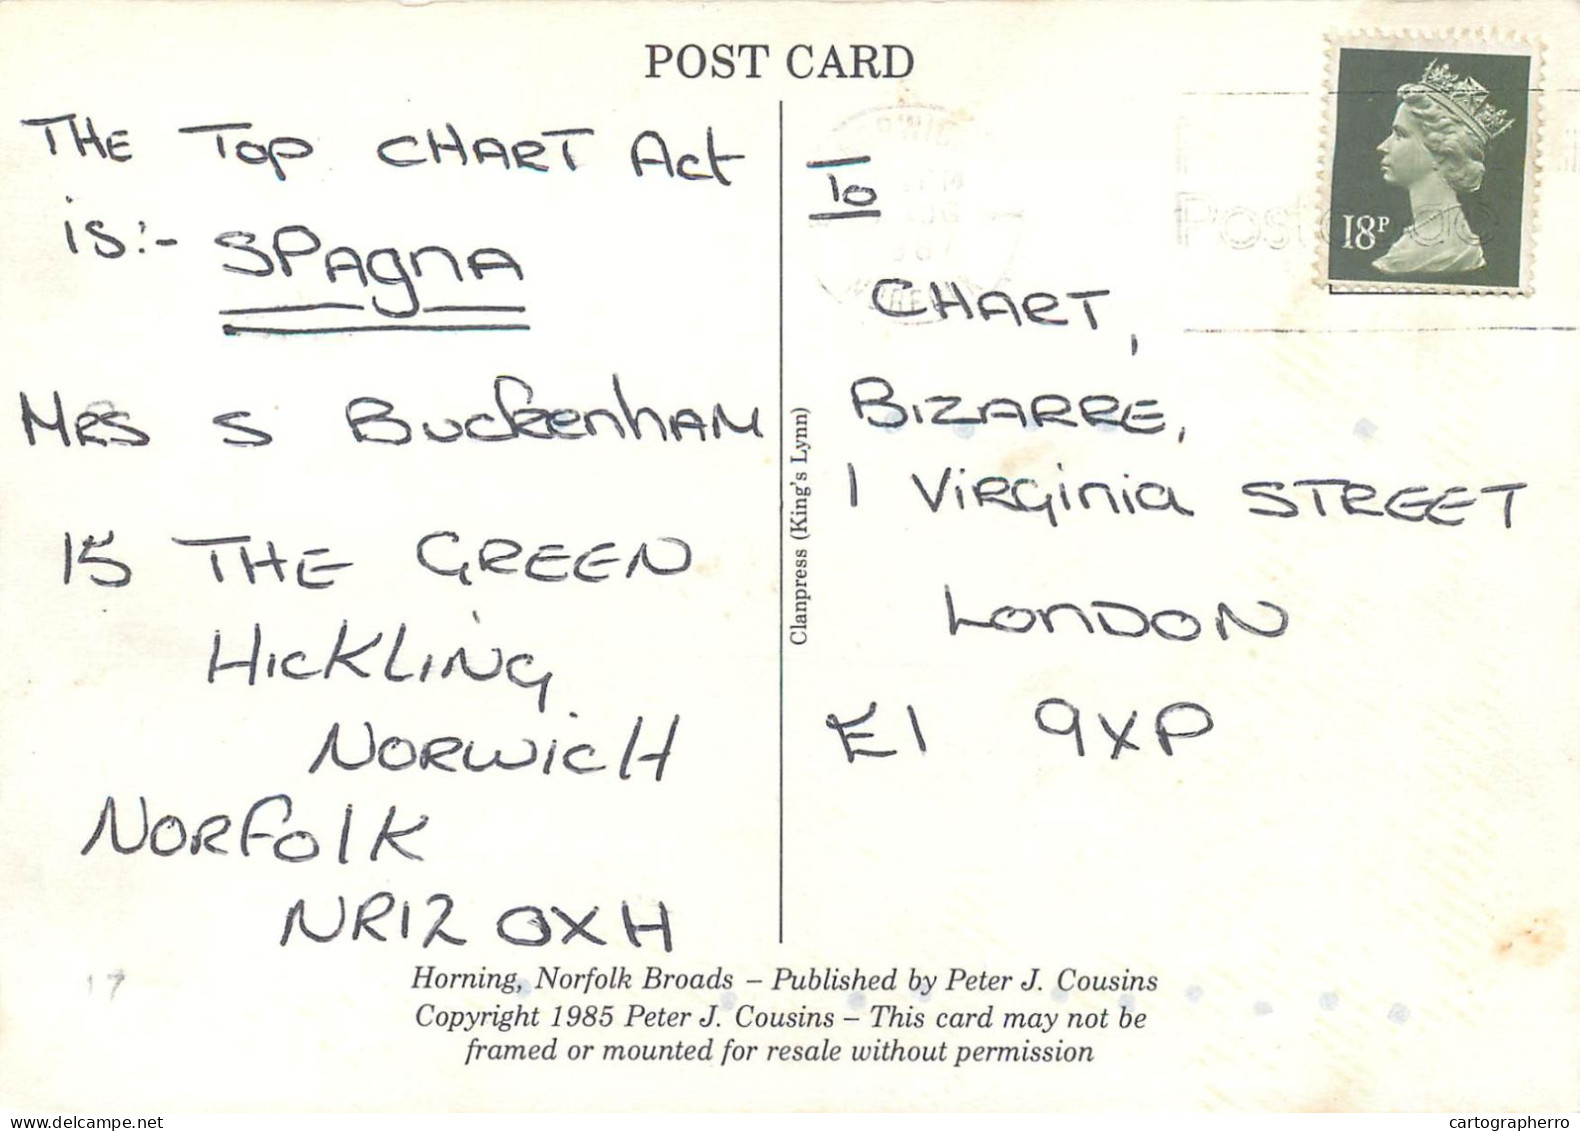 POST CARD
THE TOP CHART Act
is:- SPAgnA
MRS S BuckenhAM
15 THE GREEN
HicKLiNg
NORWicH
NORFolK
NR12 OXH
To
CHART,
BIZARRE,
1 VIRginia STREET
LonDON
E1 9XP
18P
Clanpress (King's Lynn)
17
Horning, Norfolk Broads – Published by Peter J. Cousins
Copyright 1985 Peter J. Cousins – This card may not be
framed or mounted for resale without permission
www.delcampe.net
cartographerro